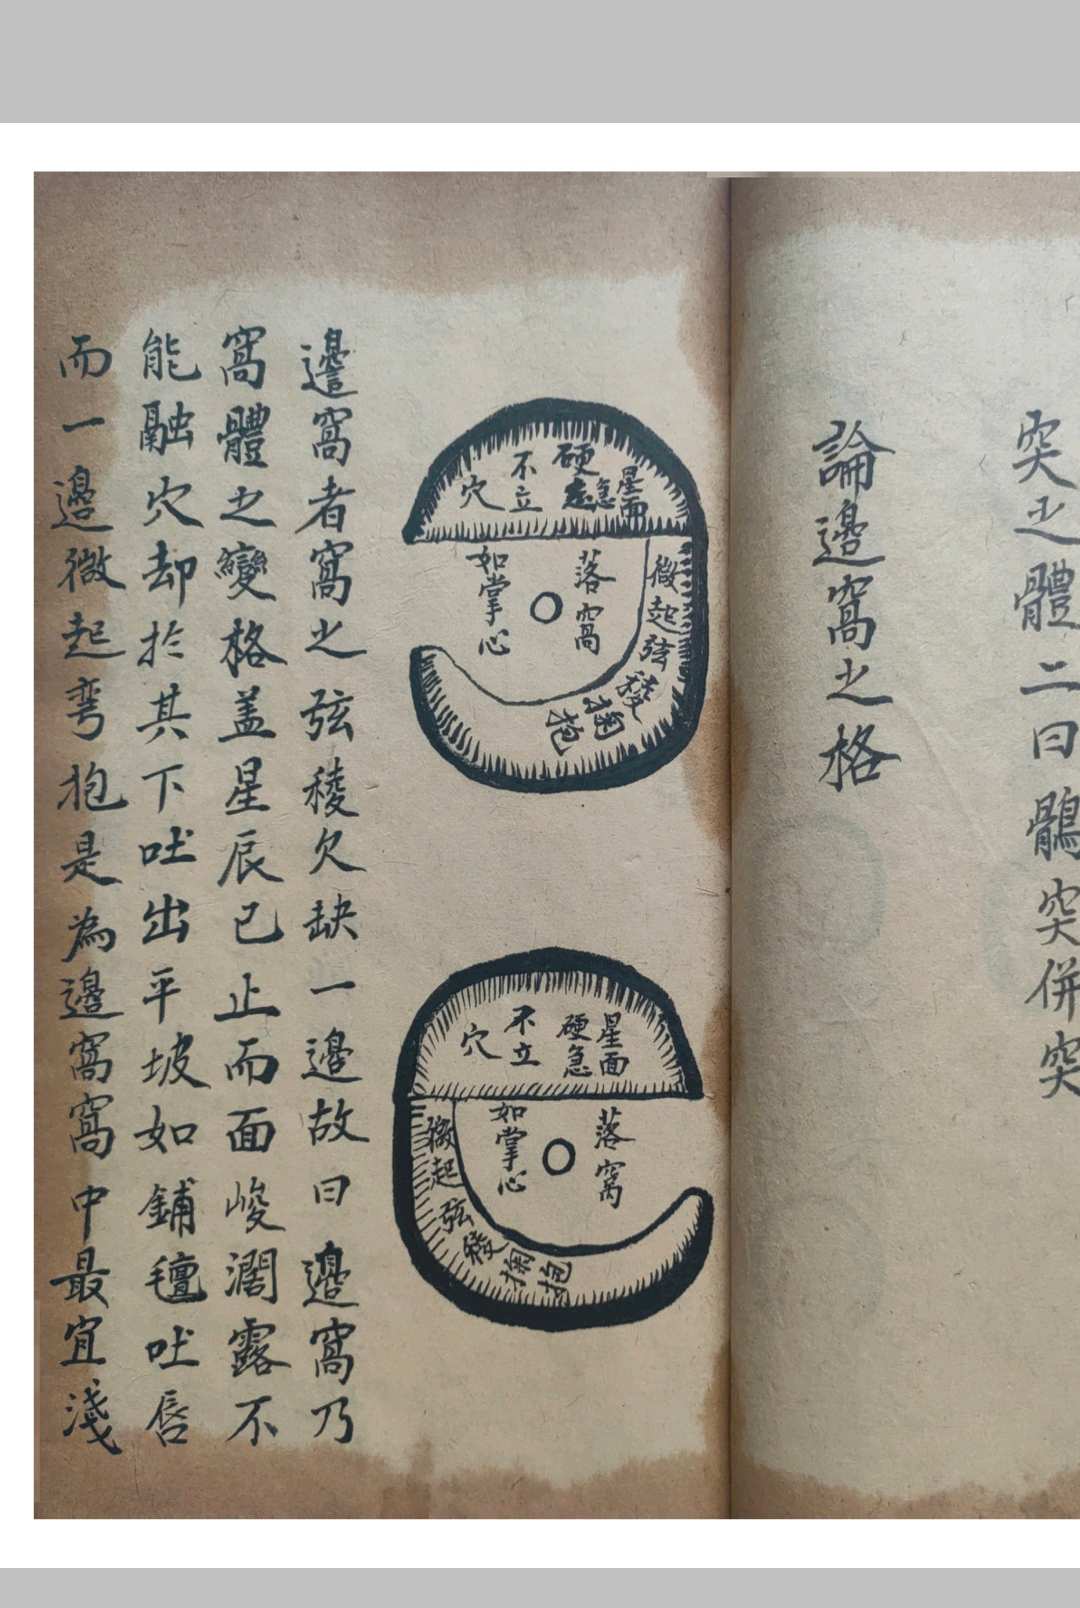 突之體二曰鶻突併突
論邉窩之格
星面
硬急
不立
穴
落窩
如掌心
微起弦稜掬抱
星面
硬急
不立
穴
落窩
如掌心
微起弦稜掬抱
邉窩者窩之弦稜欠缺一邉故曰邉窩乃
窩體之變格盖星辰已止而面峻濶露不
能融穴却於其下吐出平坡如鋪氊吐唇
而一邉微起弯抱是為邉窩窩中最宜淺